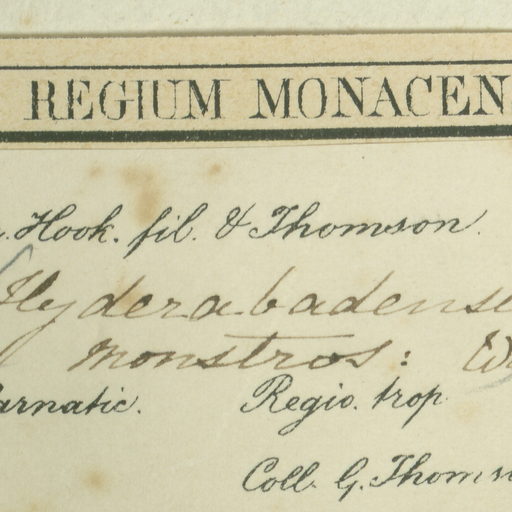 REGIUM MONACEN
Hook. fil. & Thomson.
Hyderabadense
monstros:
arnatic. Regio. trop
Coll. G. Thomso